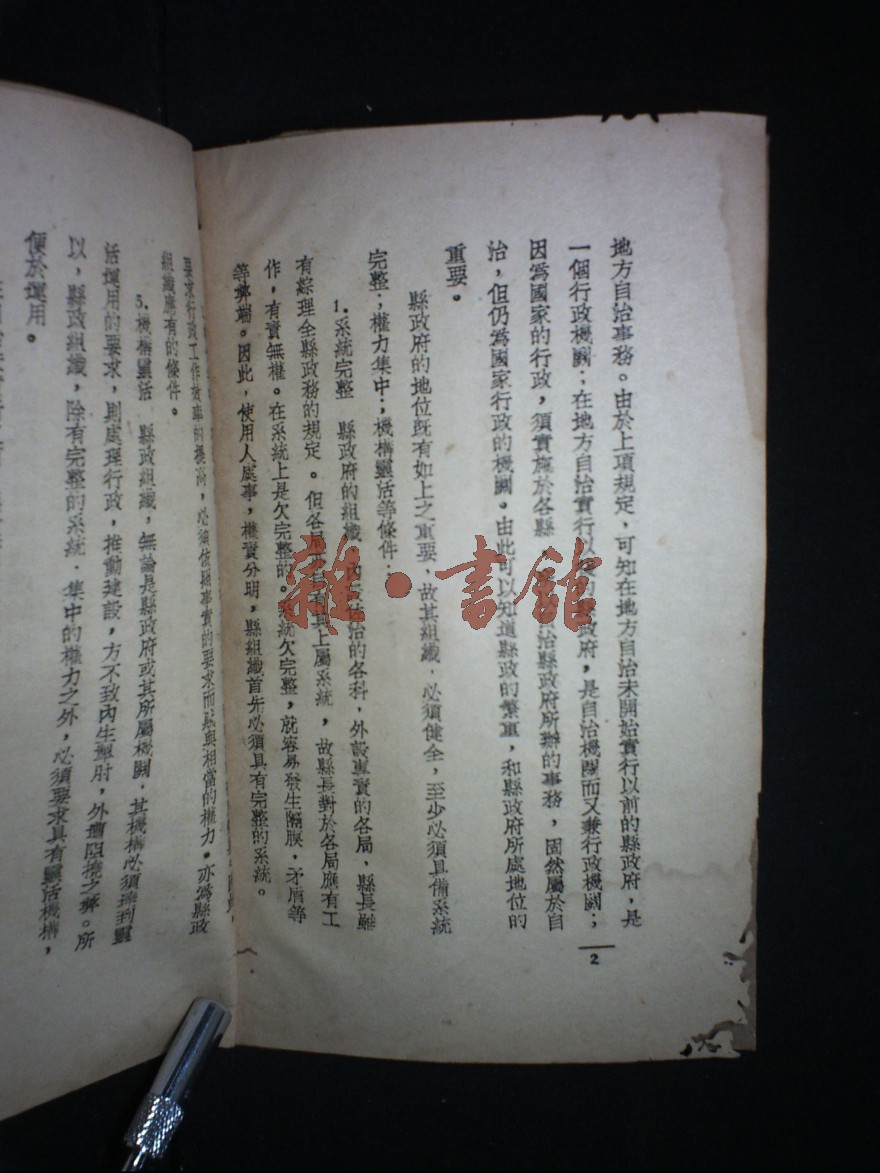 地方自治事務。由於上項規定，可知在地方自治未開始實行以前的縣政府，是
一個行政機關；在地方自治實行以後的縣政府，是自治機關而又兼行政機關；
因爲國家的行政，須實施於各縣，治縣政府所辦的事務，固然屬於自
治，但仍爲國家行政的機關。由此可以知道縣政的繁重，和縣政府所處地位的
重要。
縣政府的地位既有如上之重要，故其組織，必須健全，至少必須具備系統
完整；權力集中；機構靈活等條件：
1.系統完整　縣政府的組織，內佐治的各科，外設專責的各局，縣長雖
有綜理全縣政務的規定。但各局上屬系統，故縣長對於各局應有工
作，有責無權。在系統上是欠完整的。系統欠完整，就容易發生隔膜，矛盾等
等弊端。因此，使用人處事，權責分明，縣組織首先必須具有完整的系統。
2
要求行政工作效率的提高，必須依據事實的要求而賦與相當的權力。亦爲縣政
組織應有的條件。
3.機構靈活　縣政組織，無論是縣政府或其所屬機關，其機構必須達到靈
活運用的要求，則處理行政，推動建設，方不致內生掣肘，外遭阻機之弊。所
以，縣政組織，除有完整的系統．集中的權力之外，必須要求具有靈活機構，
便於運用。
雜·書館